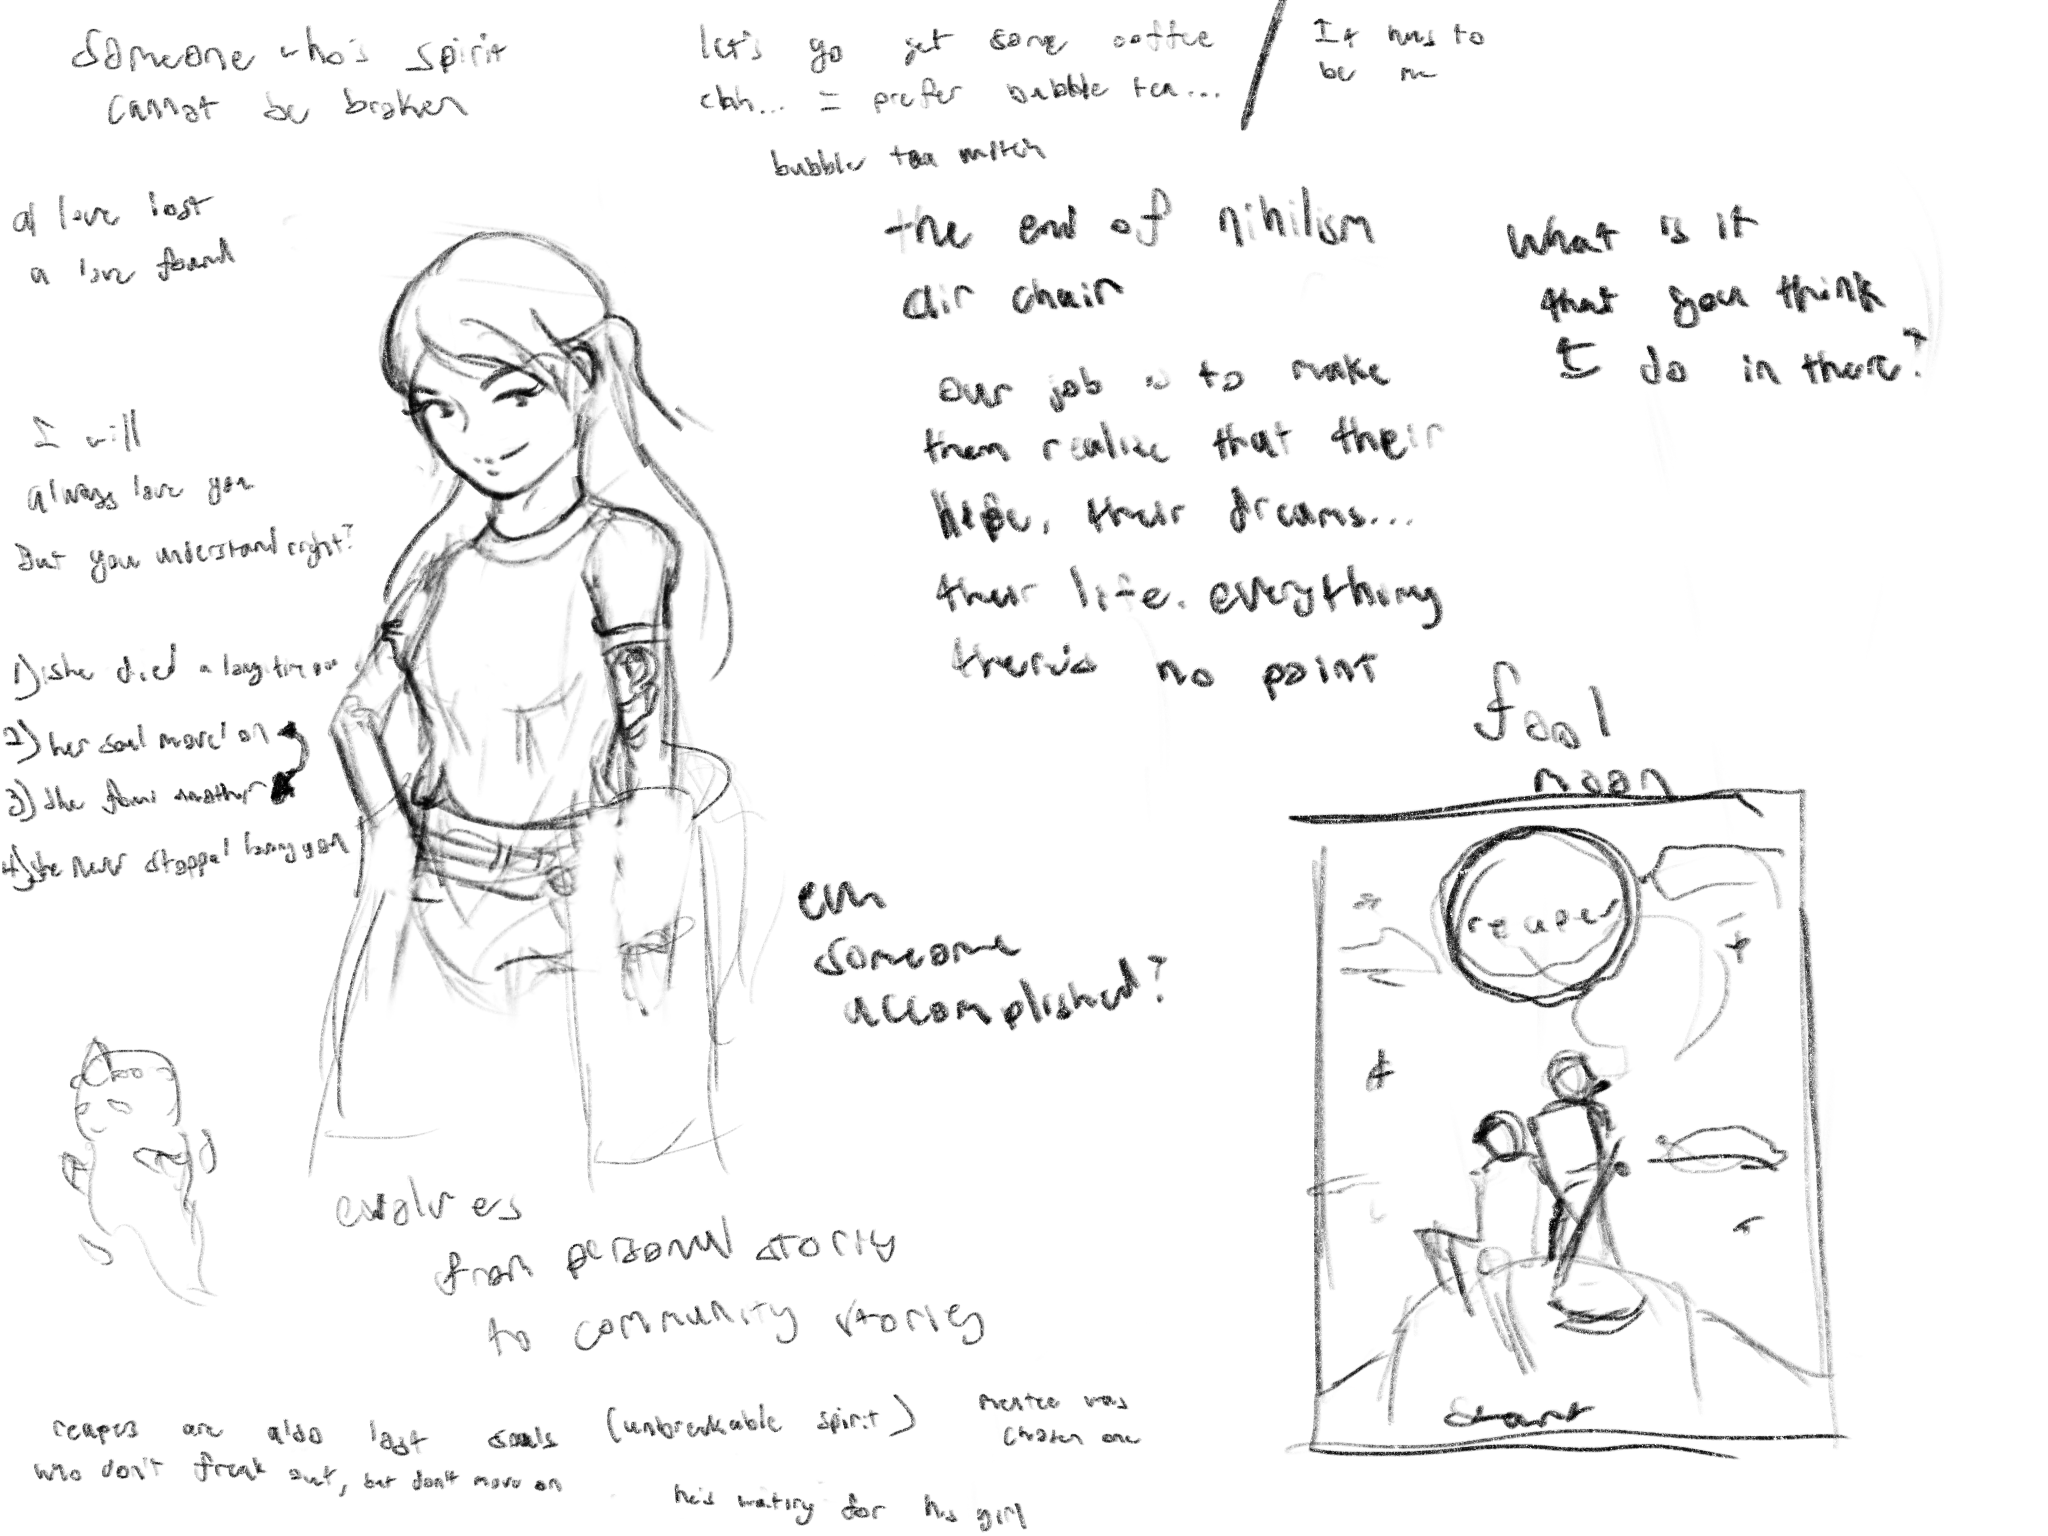 someone who's spirit
cannot be broken
let's go get some coffee
ehh... I prefer bubble tea...
bubble tea
It has to
be me
a love lost
a love found
the end of nihilism
air chair
what is it
that you think
I do in there?
our job is to make
them realize that their
hope, their dreams...
their life. everything
there's no point
I will
always love you
But you understand right?
1) she died a long time
2) her soul moved on
3) she found another
4) she never stopped loving you
even
someone
accomplished?
fool
moon
reaper
start
evolves
from personal storiy
to community stories
reapers are also lost souls (unbreakable spirit)
who don't freak out, but don't move on
mentee was
chosen one
he's waiting for his girl